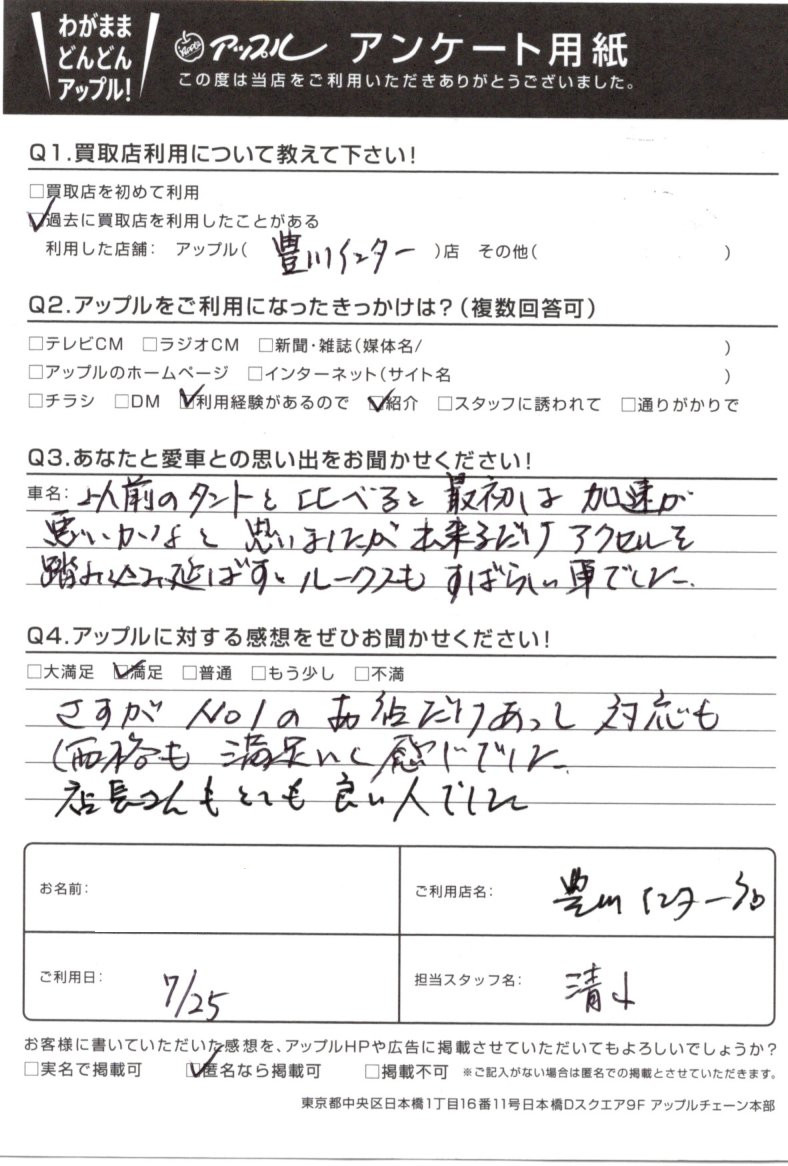 わがまま
どんどん
アップル!
APPLE アップル アンケート用紙
この度は当店をご利用いただきありがとうございました。
Q1.買取店利用について教えて下さい!
□買取店を初めて利用
☑過去に買取店を利用したことがある
利用した店舗: アップル( 豊川インター )店 その他( )
Q2.アップルをご利用になったきっかけは?(複数回答可)
□テレビCM □ラジオCM □新聞・雑誌(媒体名/ )
□アップルのホームページ □インターネット(サイト名 )
□チラシ □DM ☑利用経験があるので ☑紹介 □スタッフに誘われて □通りがかりで
Q3.あなたと愛車との思い出をお聞かせください!
車名: 以前のタントと比べると最初は加速が
悪いかなと思いましたが出来るだけアクセルを
踏み込み延ばすとルークスもすばらしい車でした。
Q4.アップルに対する感想をぜひお聞かせください!
□大満足 ☑満足 □普通 □もう少し □不満
さすがNO1のお店だけあって対応も
価格も満足いく感じでした。
店長さんもとても良い人でした
お名前:
ご利用店名: 豊川インター店
ご利用日: 7/25
担当スタッフ名: 清水
お客様に書いていただいた感想を、アップルHPや広告に掲載させていただいてもよろしいでしょうか?
□実名で掲載可 ☑匿名なら掲載可 □掲載不可 ※ご記入がない場合は匿名での掲載とさせていただきます。
東京都中央区日本橋1丁目16番11号日本橋Dスクエア9F アップルチェーン本部